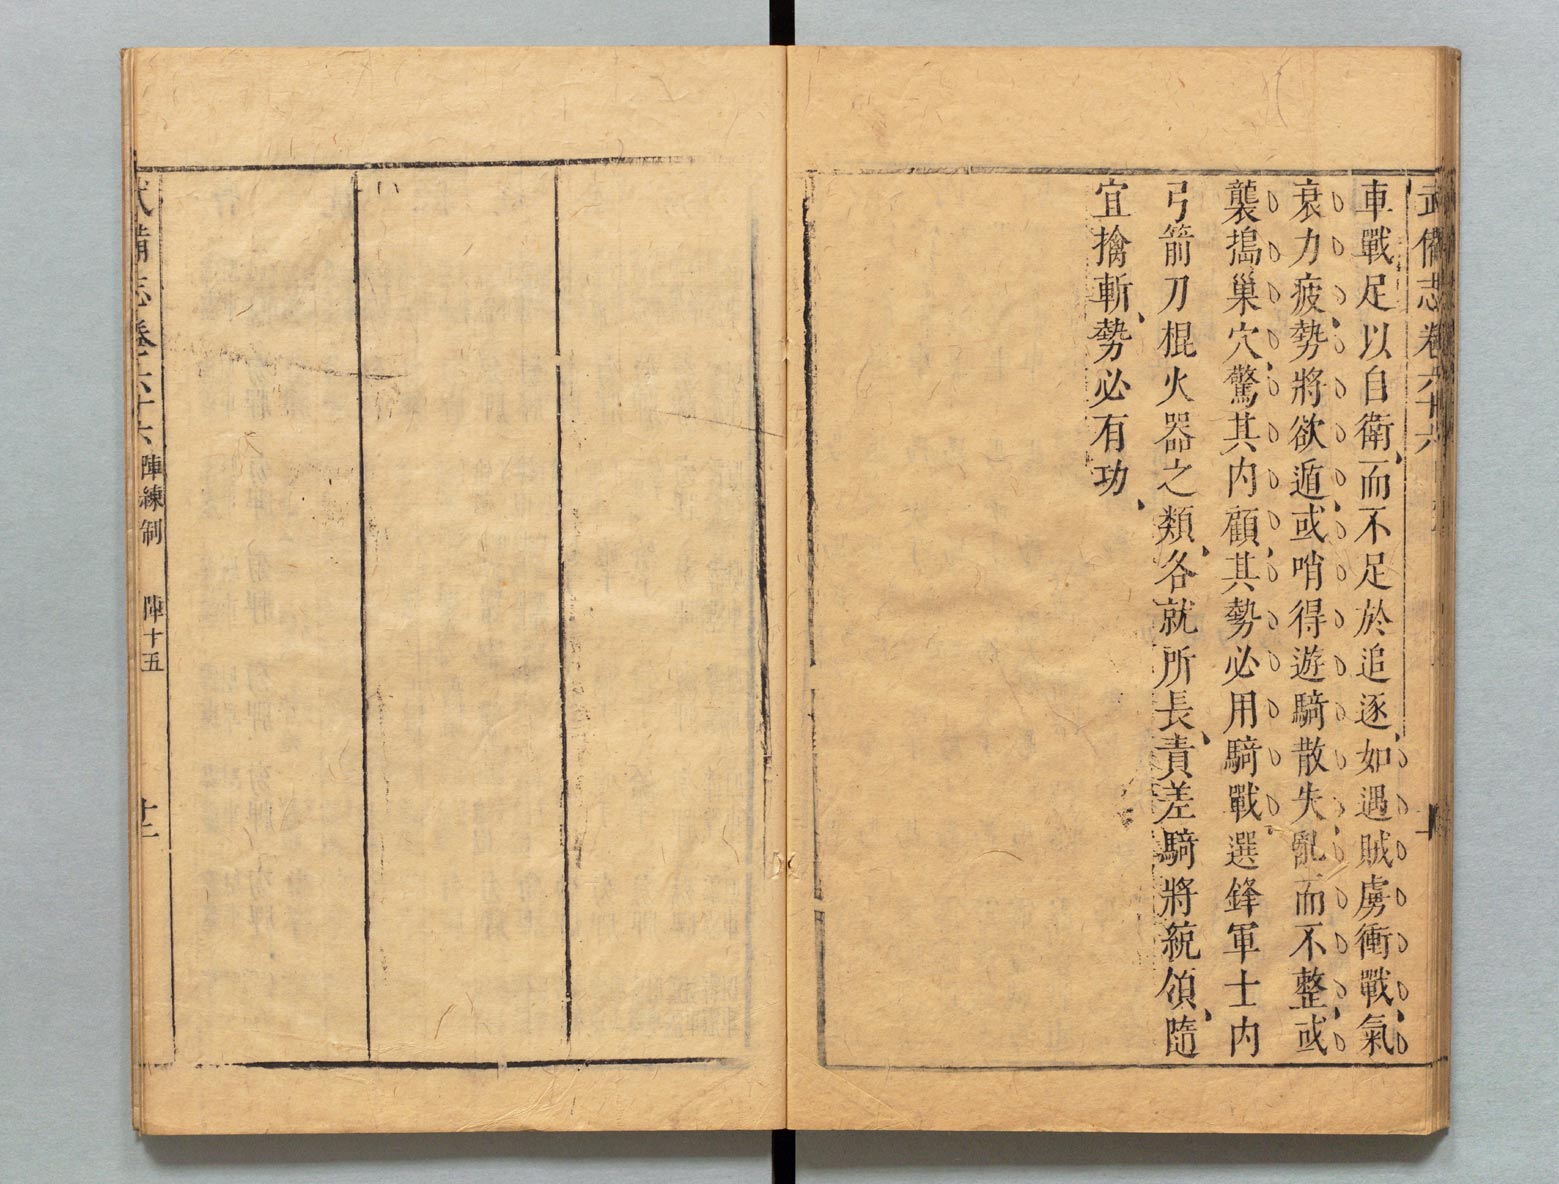 武備志卷六十六
車戰足以自衛、而不足於追逐、如遇賊虜衝戰、氣
衰力疲、勢將欲遁、或哨得遊騎散失、亂而不整、或
襲搗巢穴、驚其内顧、其勢必用騎戰、選鋒軍士内
弓箭刀棍火器之類、各就所長、責差騎將統領、隨
宜擒斬、勢必有功、
武備志卷六十六 陣練制 陣十五 十二